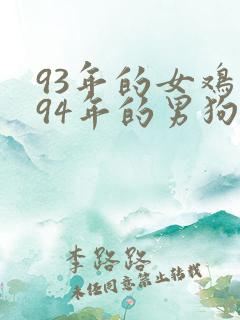 93年的女鸡
94年的男狗
李路路
未经同意禁止转载